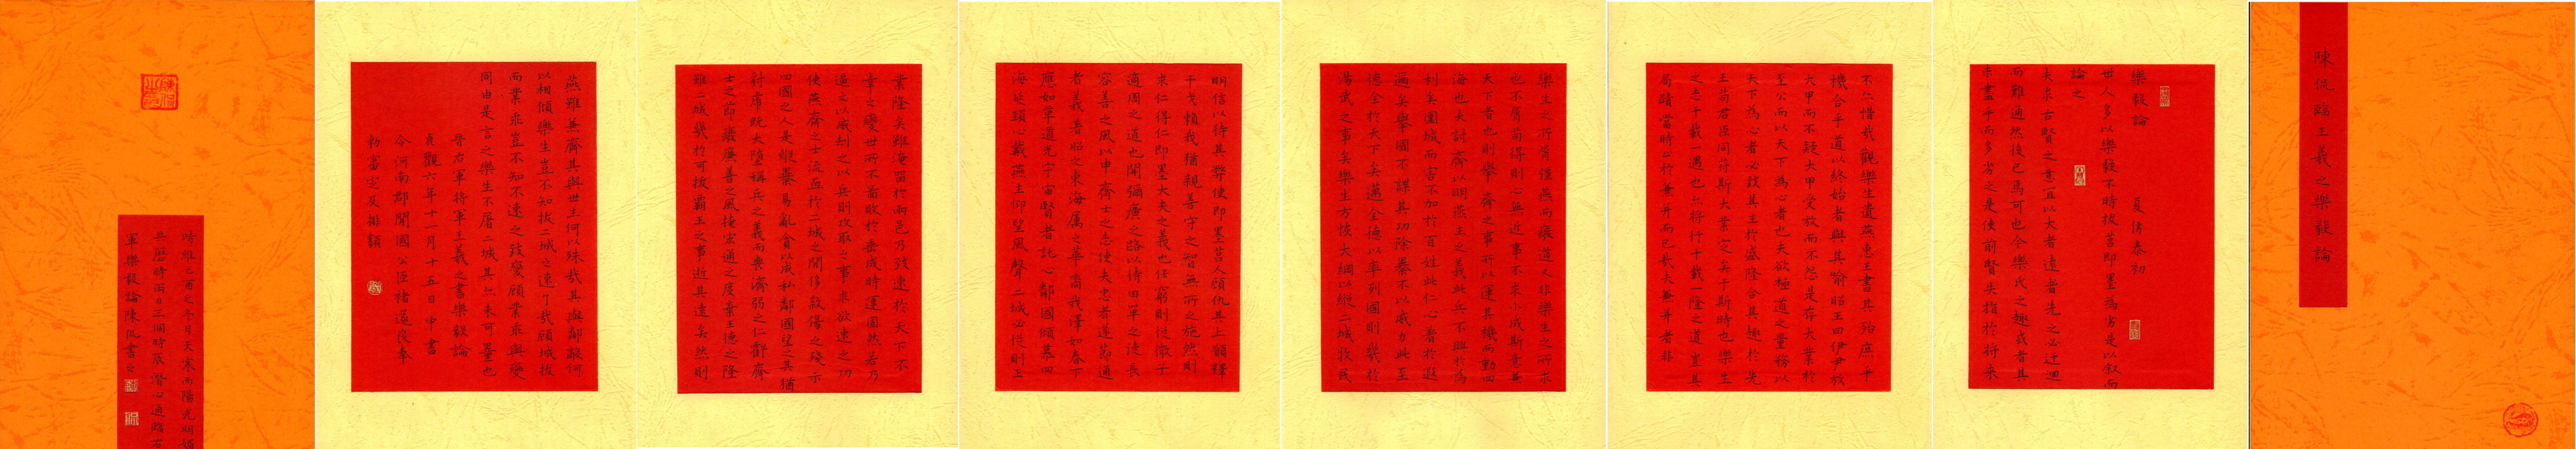 陳侃臨王羲之樂毅論
樂毅論
夏侯泰初
世人多以樂毅不時拔莒即墨為劣是以叙而
論之
夫求古賢之意宜以大者遠者先之必迂迴
而難通然後已焉可也今樂氏之趣或者其
未盡乎而多劣之是使前賢失指於将来
不亦惜哉觀樂生遺燕惠王書其殆庶乎
機合乎道以終始者與其喻昭王曰伊尹放
大甲而不疑大甲受放而不怨是存大業於
至公而以天下為心者也夫欲極道之量務以
天下為心者必致其主於盛隆合其趣於先
王苟君臣同苻斯大業定矣于斯時也樂生
之志千載一遇也亦将行千載一隆之道豈其
局蹟當時止於兼并而已哉夫兼并者非
樂生之所屑彊燕而廢道又非樂生之所求
也不屑苟得則心無近事不求小成斯意兼
天下者也則舉齊之事所以運其機而動四
海也夫討齊以明燕主之義此兵不興於為
利矣圍城而害不加於百姓此仁心著於遐
邇矣舉國不謀其功除暴不以威力此至
德全於天下矣邁全德以率列國則幾於
湯武之事矣樂生方恢大綱以縱二城牧民
明信以待其弊使即墨莒人顧仇其上願釋
干戈賴我猶親善守之智無所之施然則
求仁得仁即墨大夫之義也任窮則從微子
適周之道也開彌廣之路以待田單之徒長
容善之風以申齊士之志使夫忠者遂節通
者義著昭之東海属之華裔我澤如春下
應如草道光宇宙賢者託心鄰國傾慕四
海延頸心戴燕主仰望風聲二城必從則王
業隆矣雖淹留於兩邑乃致速於天下不
幸之變世所不圖敗於垂成時運固然若乃
逼之以威劫之以兵則攻取之事求欲速之功
使燕齊之士流血於二城之間侈殺傷之殘示
四國之人是縱暴易亂貪以成私鄰國望之其猶
豺虎既大墮稱兵之義而喪濟弱之仁虧齊
士之節廢廉善之風掩宏通之度棄王德之隆
雖二城幾於可拔霸王之事逝其遠矣然則
燕雖兼齊其與世主何以殊哉其與鄰敵何
以相傾樂生豈不知拔二城之速了哉顧城拔
而業乖豈不知不速之致變顧業乖與變
同由是言之樂生不屠二城其亦未可量也
晉右軍将軍王羲之書樂毅論
貞觀六年十一月十五日中書
令河南郡開國公臣褚遂良奉
勅審定及排類
時維己酉之冬月天寒而陽光明媚
共歷時兩日三個時辰潛心通臨右
軍樂毅論陳侃書之